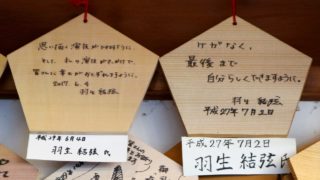 思い描く演技ができますように
そして、私の演技を見ただけで、
皆さんに幸せがおとずれますように。
2017. 6. 4
羽生 結弦
平成29年6月4日
羽生 結弦 氏
けがなく、
最後まで
自分らしくできますように。
羽生 結弦
平成27年7月2日
平成.27年7月2日
羽生 結弦 氏